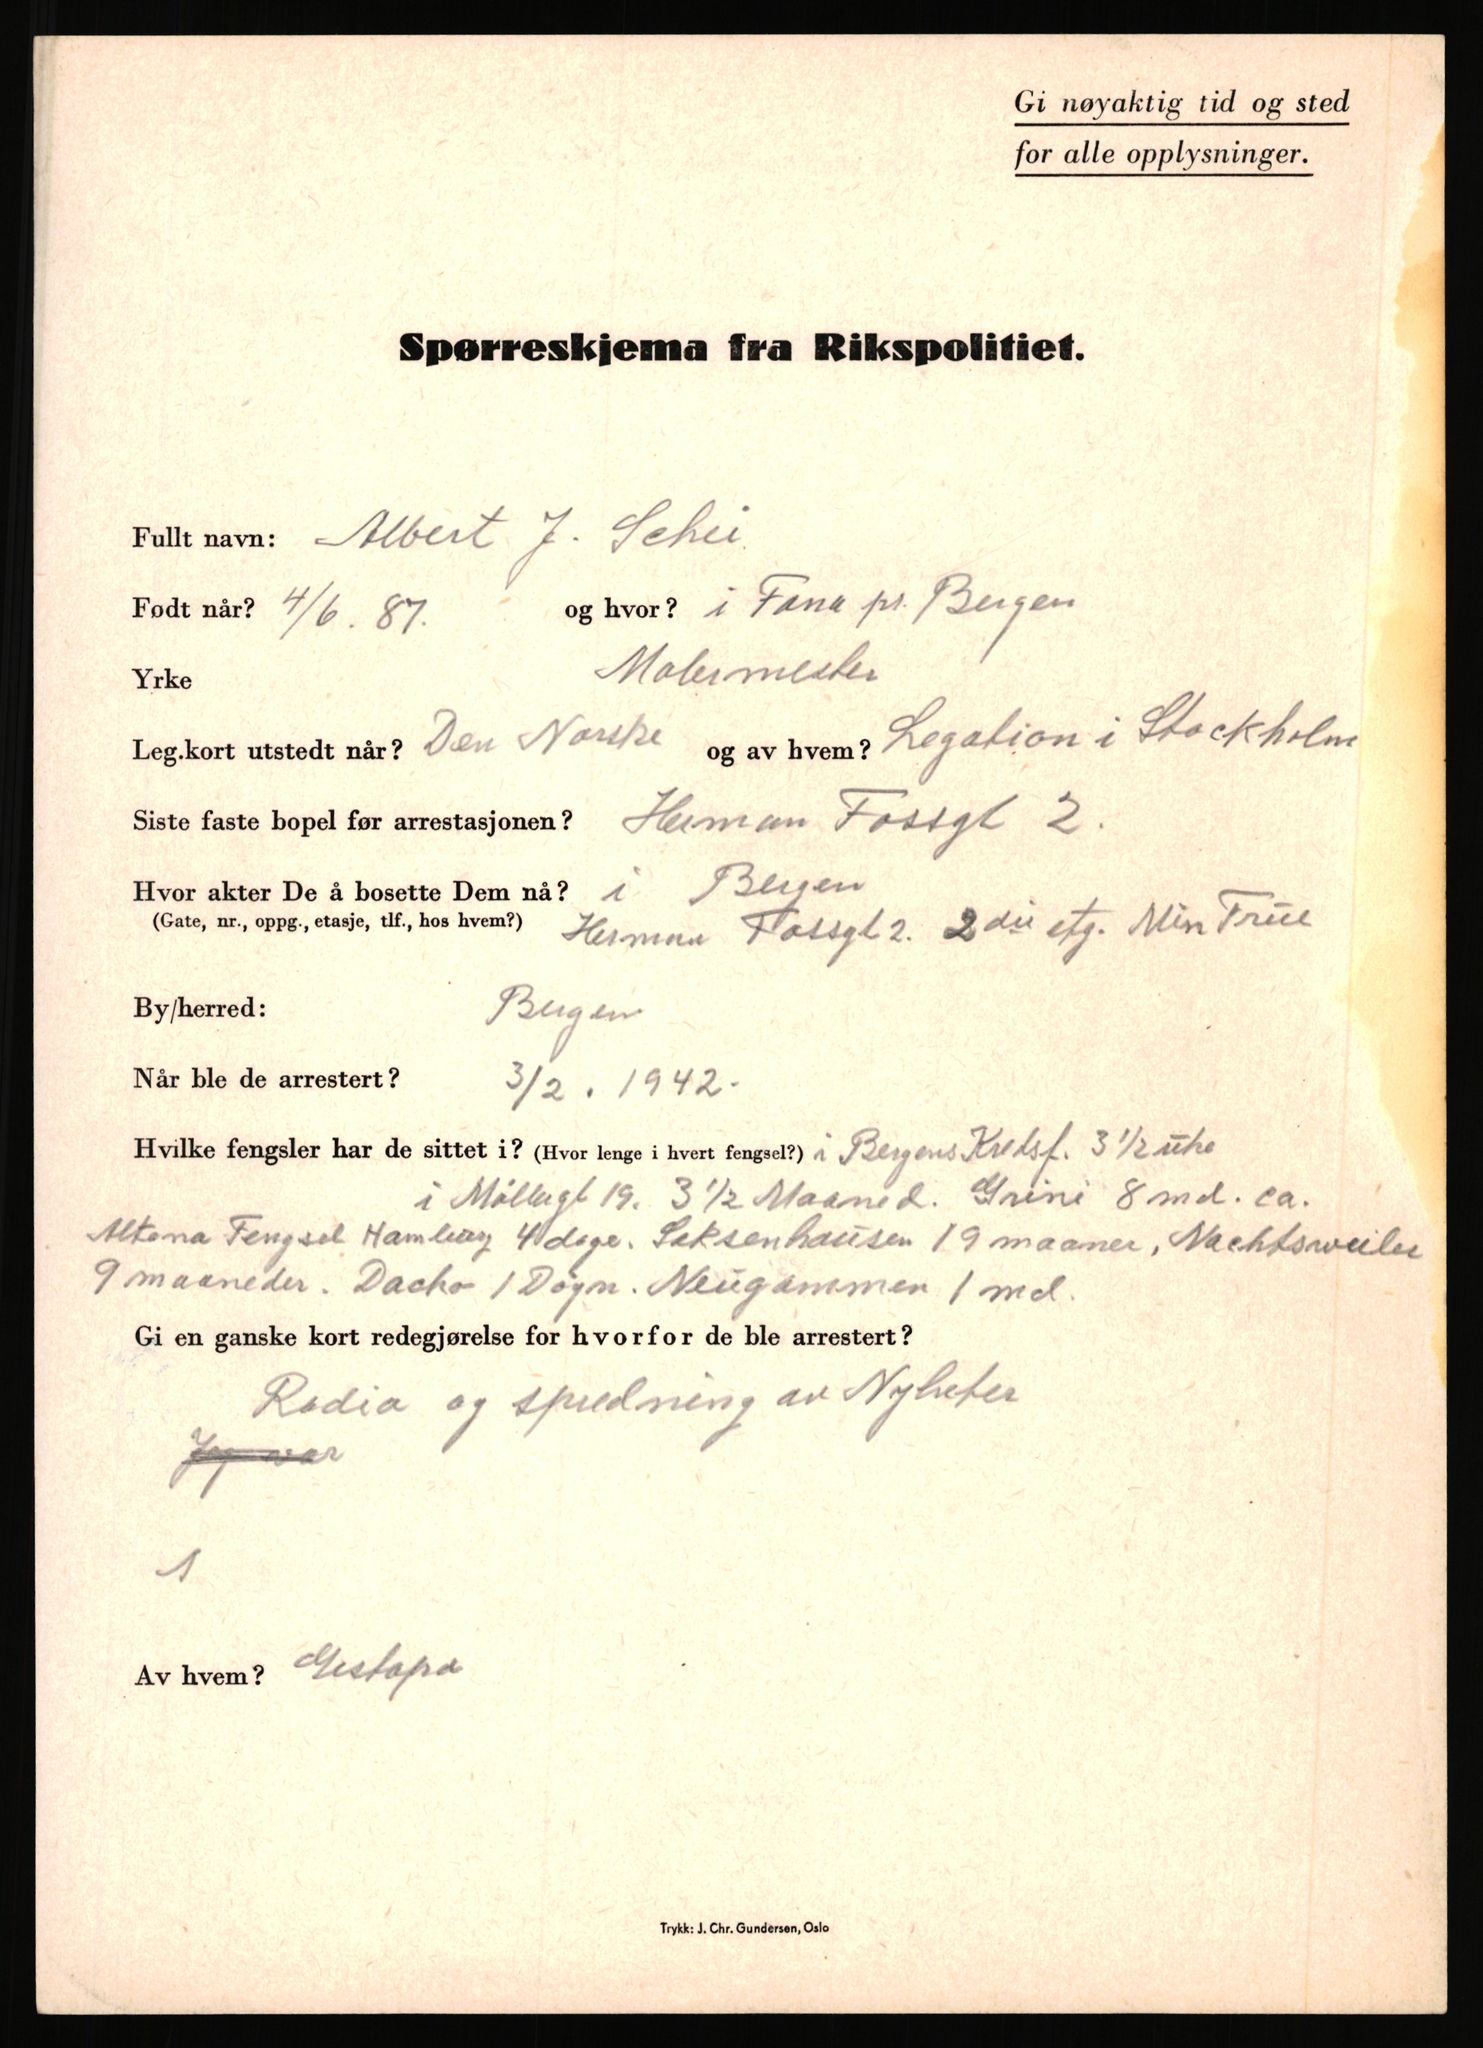 Gi nøyaktig tid og sted
for alle opplysninger.
Spørreskjema fra Rikspolitiet.
Fullt navn: Albert J. Schei
Født når? 4/6. 87. og hvor? i Fana pr. Bergen
Yrke Malermester
Leg.kort utstedt når? Den Norske og av hvem? Legation i Stockholm
Siste faste bopel før arrestasjonen? Herman Fossgt 2.
Hvor akter De å bosette Dem nå? i Bergen
(Gate, nr., oppg., etasje, tlf., hos hvem?) Herman Fossgt 2. 2den etg. Min Frue
By/herred: Bergen
Når ble de arrestert? 3/2. 1942.
Hvilke fengsler har de sittet i? (Hvor lenge i hvert fengsel?) i Bergens Kredsf. 3 1/2 uke
i Møllergt 19. 3 1/2 Maaned. Grini 8 md. ca.
Altona Fengsel Hamburg 4 dage. Saksenhausen 19 maaner, Nachtsweiler
9 maaneder. Dacho 1 Døgn. Neugammen 1 md.
Gi en ganske kort redegjørelse for hvorfor de ble arrestert?
Radio og spredning av Nyheter
Jeg var
Av hvem? Gestapo
Trykk: J. Chr. Gundersen, Oslo